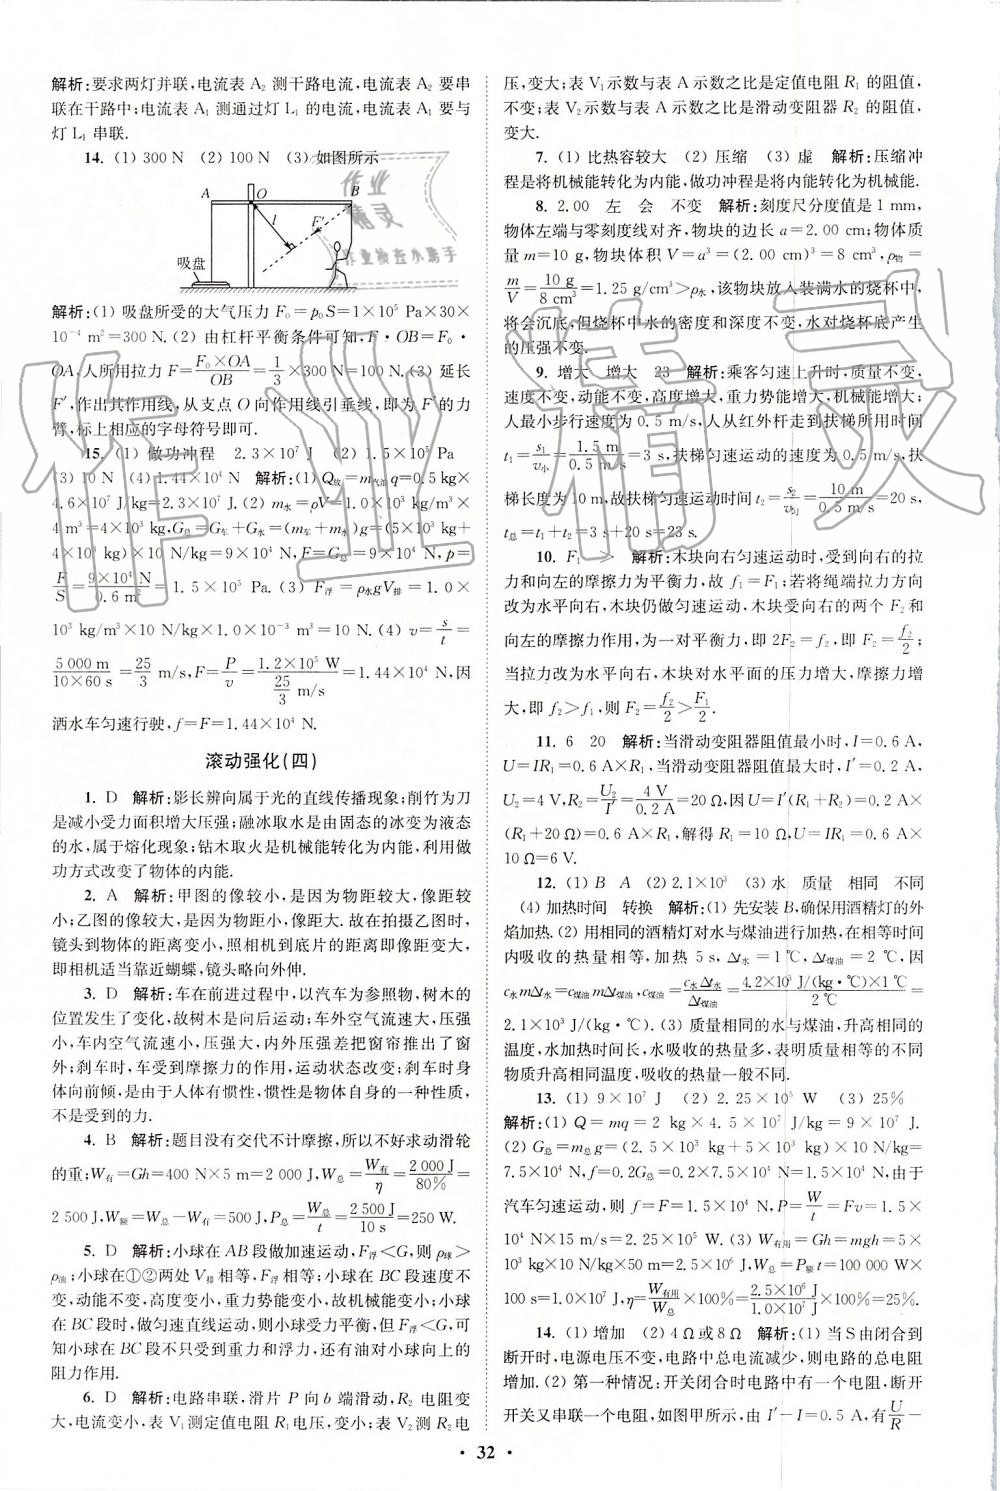 解析:要求两灯并联,电流表 A₂ 测干路电流,电流表 A₂ 要串
联在干路中;电流表 A₁ 测通过灯 L₁ 的电流,电流表 A₁ 要与
灯 L₁ 串联.
14. (1) 300 N (2) 100 N (3) 如图所示
A O B
l F′
吸盘
作业
精灵
作业检查小助手
解析:(1) 吸盘所受的大气压力 F₀=p₀S=1×10⁵ Pa×30×
10⁻⁴ m²=300 N. (2) 由杠杆平衡条件可知,F·OB=F₀·
OA,人所用拉力 F=F₀×OA/OB=300 N×1/3=100 N. (3) 延长
F′,作出其作用线,从支点 O 向作用线引垂线,即为 F′的力
臂,标上相应的字母符号即可.
15. (1) 做功冲程 2.3×10⁷ J (2) 1.5×10⁵ Pa
(3) 10 N (4) 1.44×10⁴ N 解析:(1) Q放=m汽油q=0.5 kg×
4.6×10⁷ J/kg=2.3×10⁷ J. (2) m水=ρV=1.0×10³ kg/m³×
4 m³=4×10³ kg,G总=G车+G水=(m车+m水)g=(5×10³ kg+
4×10³ kg)×10 N/kg=9×10⁴ N,F=G总=9×10⁴ N,p=
F/S=9×10⁴ N/0.6 m²=1.5×10⁵ Pa. (3) F浮=ρ水gV排=1.0×
10³ kg/m³×10 N/kg×1.0×10⁻³ m³=10 N. (4) v=s/t=
5 000 m/10×60 s=25/3 m/s,F=P/v=1.2×10⁵ W/(25/3 m/s)=1.44×10⁴ N,因
洒水车匀速行驶,f=F=1.44×10⁴ N.
滚动强化(四)
1. D 解析:影长辨向属于光的直线传播现象;削竹为刀
是减小受力面积增大压强;融冰取水是由固态的冰变为液态
的水,属于熔化现象;钻木取火是机械能转化为内能,利用做
功方式改变了物体的内能.
2. A 解析:甲图的像较小,是因为物距较大,像距较
小;乙图的像较大,是因为物距小,像距大. 故在拍摄乙图时,
镜头到物体的距离变小,照相机到底片的距离即像距变大,
即相机适当靠近蝴蝶,镜头略向外伸.
3. D 解析:车在前进过程中,以汽车为参照物,树木的
位置发生了变化,故树木是向后运动;车外空气流速大,压强
小,车内空气流速小,压强大,内外压强差把窗帘推出了窗
外;刹车时,车受到摩擦力的作用,运动状态改变;刹车时身
体向前倾,是由于人体有惯性,惯性是物体自身的一种性质,
不是受到的力.
4. B 解析:题目没有交代不计摩擦,所以不好求动滑轮
的重;W有=Gh=400 N×5 m=2 000 J,W总=W有/η=2 000 J/80%=
2 500 J,W额=W总-W有=500 J,P总=W总/t=2 500 J/10 s=250 W.
5. D 解析:小球在 AB 段做加速运动,F浮<G,则 ρ球>
ρ油;小球在①②两处 V排相等,F浮相等;小球在 BC 段速度不
变,动能不变,高度变小,重力势能变小,故机械能变小;小球
在 BC 段时,做匀速直线运动,则小球受力平衡,但 F浮<G,可
知小球在 BC 段不只受到重力和浮力,还有油对小球向上的
阻力作用.
6. D 解析:电路串联,滑片 P 向 b 端滑动,R₂ 电阻变
大,电流变小;表 V₁ 测定值电阻 R₁ 电压,变小;表 V₂ 测 R₂ 电
压,变大;表 V₁ 示数与表 A 示数之比是定值电阻 R₁ 的阻值,
不变;表 V₂ 示数与表 A 示数之比是滑动变阻器 R₂ 的阻值,
变大.
7. (1) 比热容较大 (2) 压缩 (3) 虚 解析:压缩冲
程是将机械能转化为内能,做功冲程是将内能转化为机械能.
8. 2.00 左 会 不变 解析:刻度尺分度值是 1 mm,
物体左端与零刻度线对齐,物块的边长 a=2.00 cm;物块质
量 m=10 g,物块体积 V=a³=(2.00 cm)³=8 cm³,ρ物=
m/V=10 g/8 cm³=1.25 g/cm³>ρ水,该物块放入装满水的烧杯中,
将会沉底,但烧杯中水的密度和深度不变,水对烧杯底产生
的压强不变.
9. 增大 增大 23 解析:乘客匀速上升时,质量不变,
速度不变,动能不变,高度增大,重力势能增大,机械能增大;
人最小步行速度为 0.5 m/s,人从红外杆走到扶梯所用时间
t₁=s₁/v小=1.5 m/0.5 m/s=3 s,扶梯匀速运动的速度为 0.5 m/s,扶
梯长度为 10 m,故扶梯匀速运动时间 t₂=s₂/v匀=10 m/0.5 m/s=20 s,
t总=t₁+t₂=3 s+20 s=23 s.
10. F₁ > 解析:木块向右匀速运动时,受到向右的拉
力和向左的摩擦力为平衡力,故 f₁=F₁;若将绳端拉力方向
改为水平向右,木块仍做匀速运动,木块受向右的两个 F₂ 和
向左的摩擦力作用,为一对平衡力,即 2F₂=f₂,即 F₂=f₂/2;
当拉力改为水平向右时,木块对水平面的压力增大,摩擦力增
大,即 f₂>f₁,则 F₂=f₂/2>F₁/2.
11. 6 20 解析:当滑动变阻器阻值最小时,I=0.6 A,
U=IR₁=0.6 A×R₁;当滑动变阻器阻值最大时,I′=0.2 A,
U₂=4 V,R₂=U₂/I′=4 V/0.2 A=20 Ω,因 U=I′(R₁+R₂)=0.2 A×
(R₁+20 Ω)=0.6 A×R₁,解得 R₁=10 Ω,U=IR₁=0.6 A×
10 Ω=6 V.
12. (1) B A (2) 2.1×10³ (3) 水 质量 相同 不同
(4) 加热时间 转换 解析:(1) 先安装 B,确保用酒精灯的外
焰加热. (2) 用相同的酒精灯对水与煤油进行加热,在相同时
间内吸收的热量相等,加热 5 s,Δt水=1 ℃,Δt煤油=2 ℃,因
c水mΔt水=c煤油mΔt煤油,故 c煤油=c水Δt水/Δt煤油=4.2×10³ J/(kg·℃)×1 ℃/2 ℃=
2.1×10³ J/(kg·℃). (3) 质量相同的水与煤油,升高相同的
温度,水加热时间长,水吸收的热量多,表明质量相等的不同
物质升高相同温度,吸收的热量一般不同.
13. (1) 9×10⁷ J (2) 2.25×10⁵ W (3) 25%
解析:(1) Q=mq=2 kg×4.5×10⁷ J/kg=9×10⁷ J.
(2) G总=m总g=(2.5×10³ kg+5×10³ kg)×10 N/kg=
7.5×10⁴ N,f=0.2G总=0.2×7.5×10⁴ N=1.5×10⁴ N,由于
汽车匀速运动,则 F=f=1.5×10⁴ N,P=W/t=Fv=1.5×
10⁴ N×15 m/s=2.25×10⁵ W. (3) W有用=Gh=mgh=5×
10³ kg×10 N/kg×50 m=2.5×10⁶ J,W总=P额t=100 000 W×
100 s=1.0×10⁷ J,η=W有用/W总×100%=2.5×10⁶ J/1.0×10⁷ J×100%=25%.
14. (1) 增加 (2) 4 Ω或 8 Ω 解析:(1) 当 S 由闭合到
断开时,电源电压不变,电路中总电流减少,则电路的总电阻
增加. (2) 第一种情况:开关闭合时电路中有一个电阻,断开
开关又串联一个电阻,如图甲所示,由 I′-I=0.5 A,有U/R-
• 32 •
作业精灵